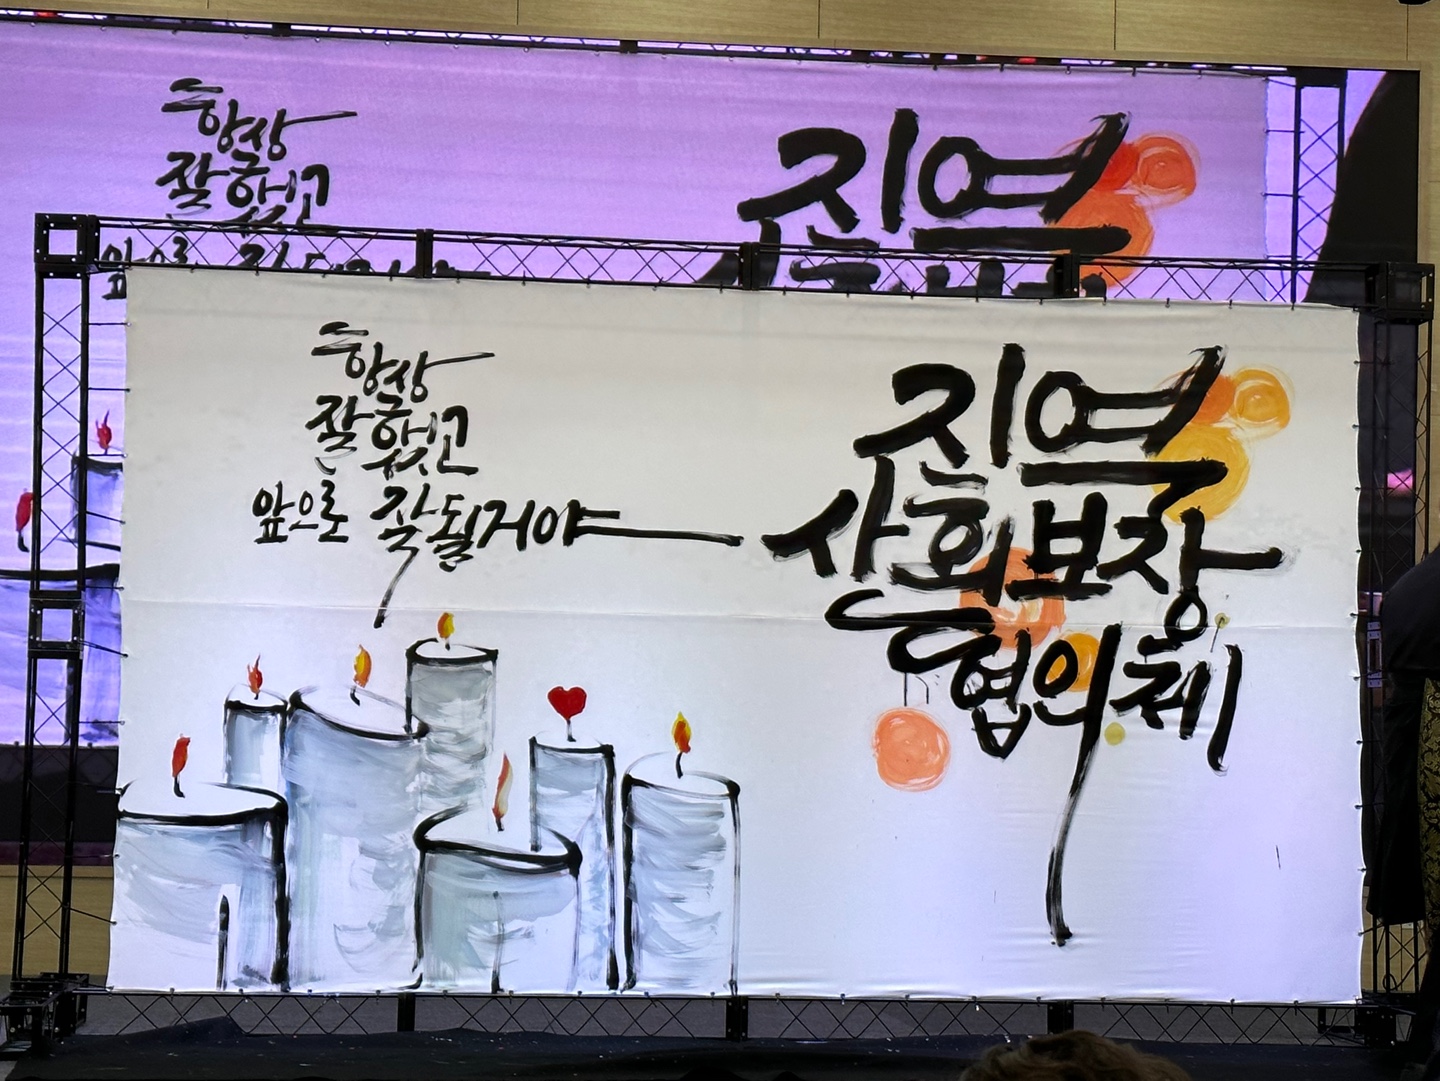 항상
잘했고
앞으로 잘될거야
지역
사회보장
협의체
항상
잘했고
앞으로
지역